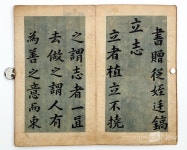 書贈從姪廷鎬
立志
立者植立不撓
之謂志者一直
去做之謂人有
為善之意而東